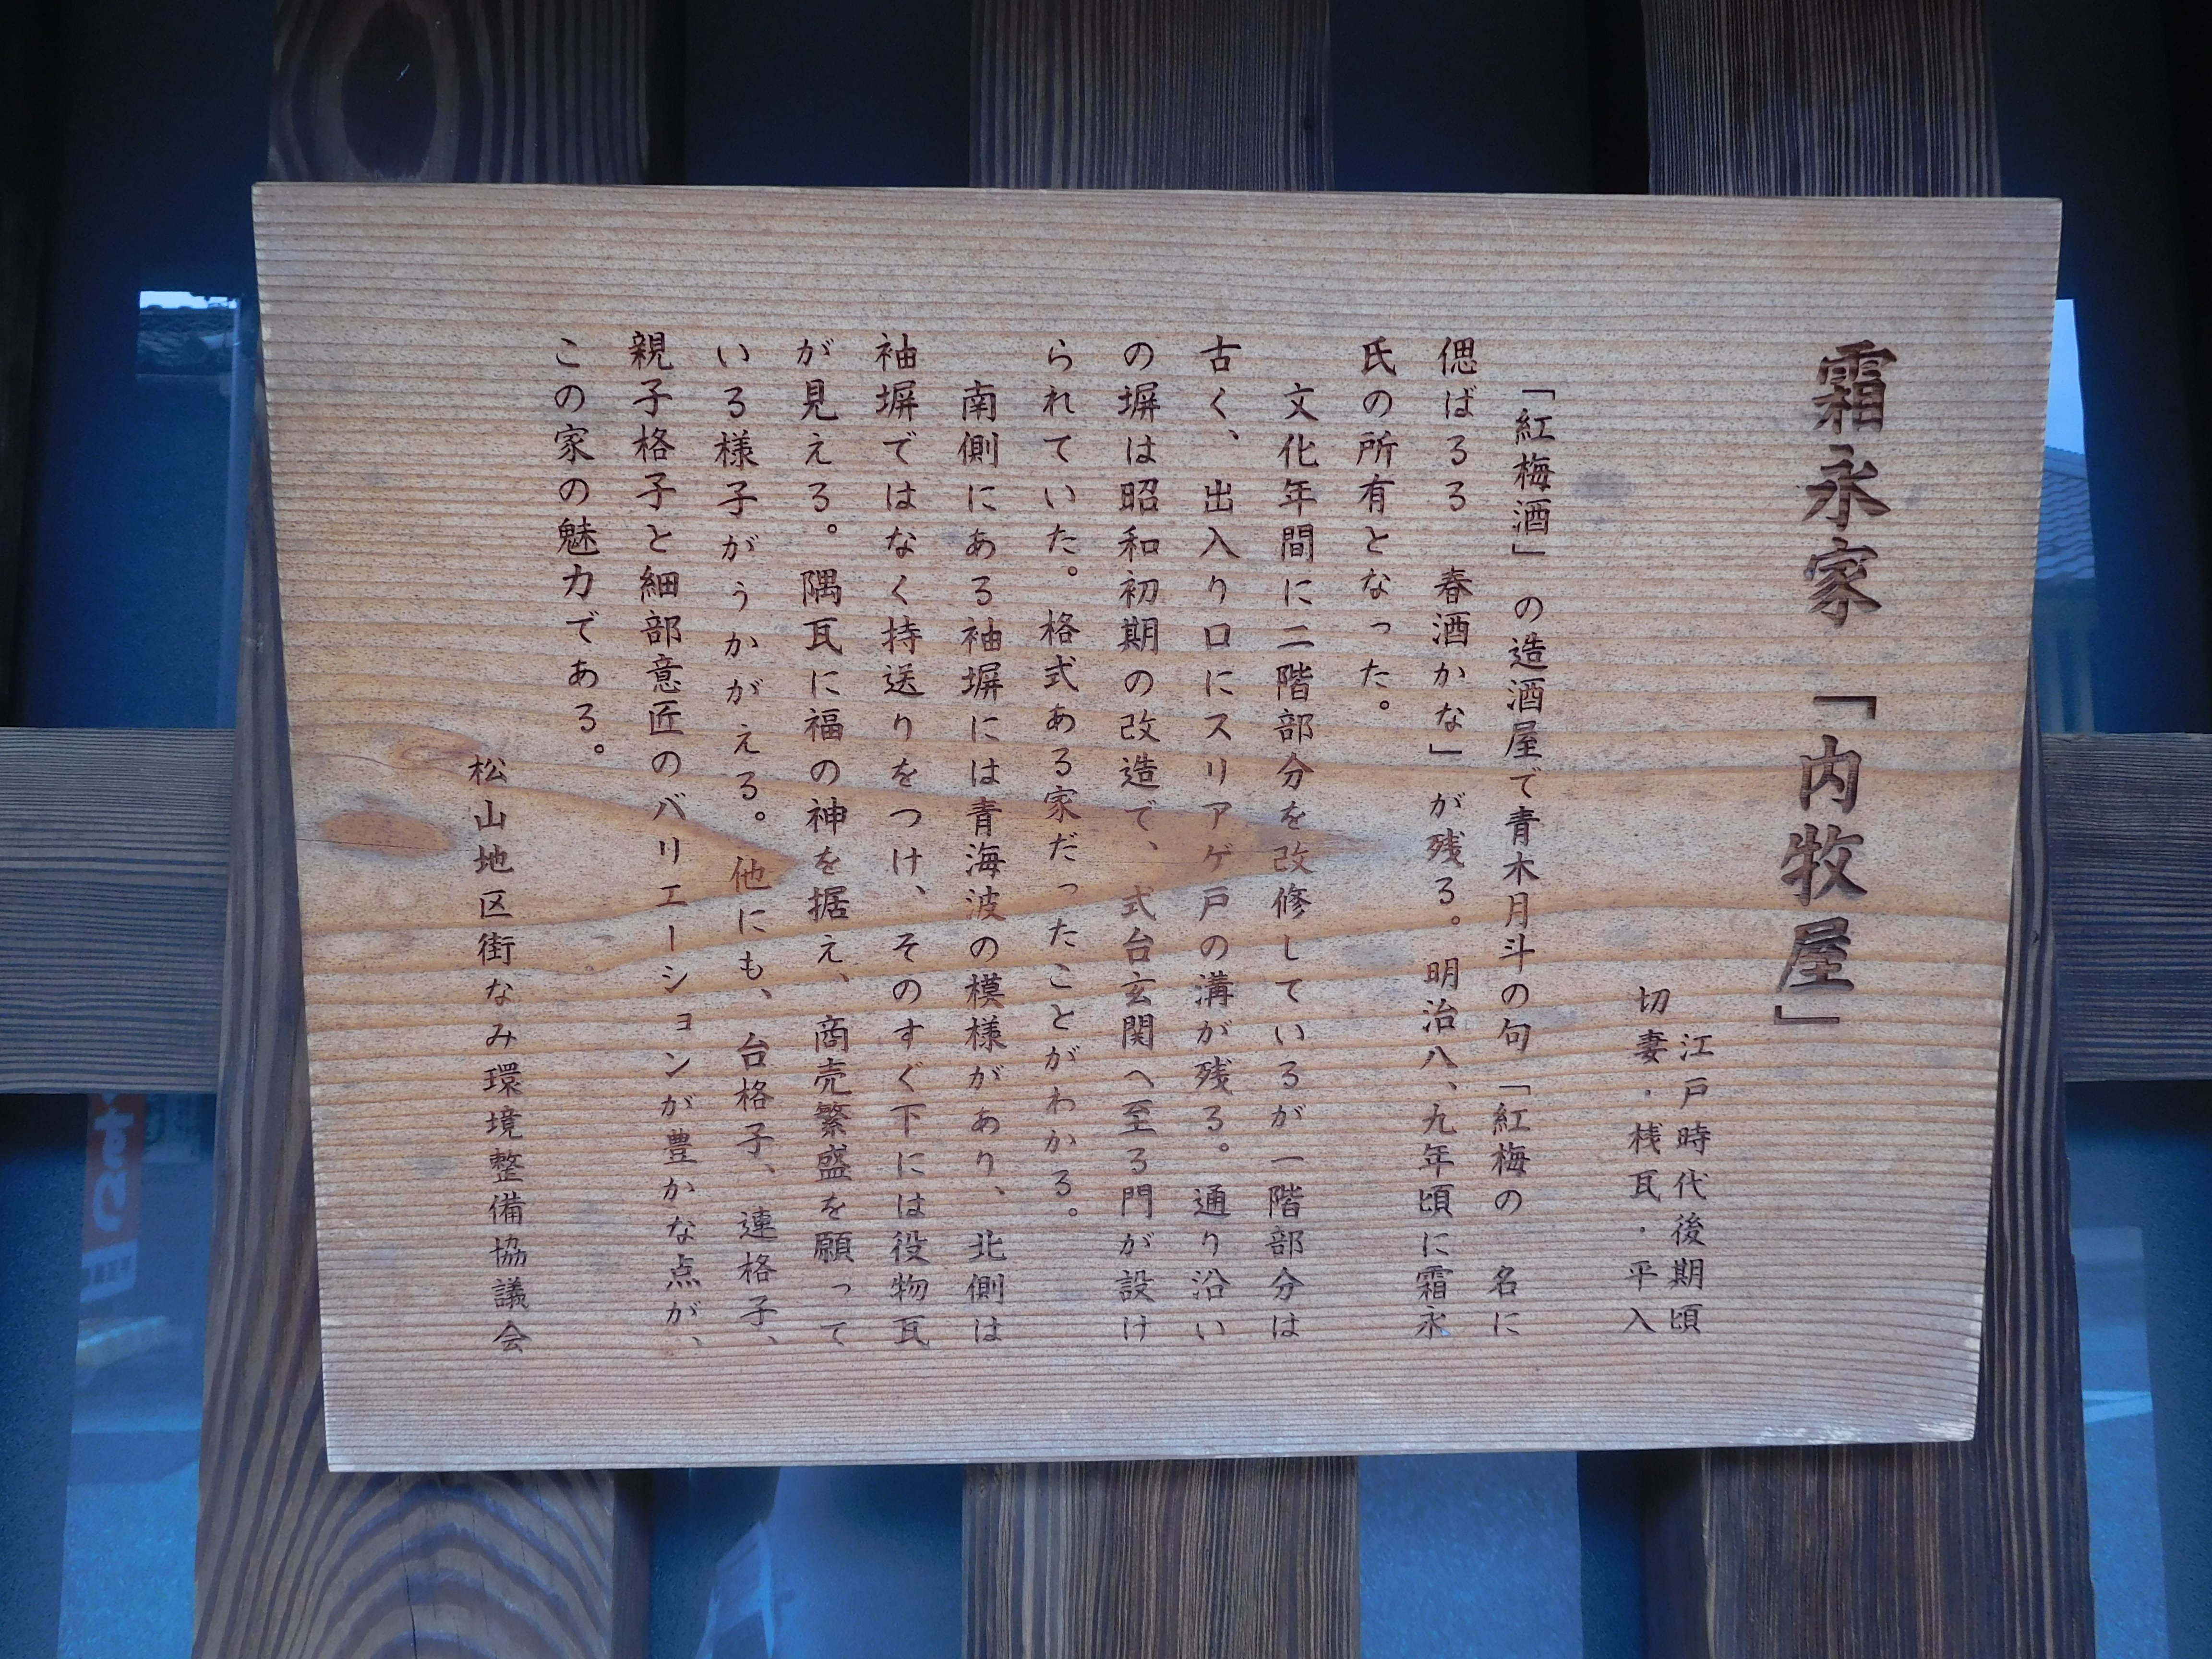 霜永家 「内牧屋」
江戸時代後期頃
切妻・桟瓦・平入
「紅梅酒」の造酒屋で青木月斗の句「紅梅の 名に
偲ばるる 春酒かな」が残る。明治八、九年頃に霜永
氏の所有となった。
文化年間に二階部分を改修しているが一階部分は
古く、出入り口にスリアゲ戸の溝が残る。通り沿い
の塀は昭和初期の改造で、式台玄関へ至る門が設け
られていた。格式ある家だったことがわかる。
南側にある袖塀には青海波の模様があり、北側は
袖塀ではなく持送りをつけ、そのすぐ下には役物瓦
が見える。隅瓦に福の神を据え、商売繁盛を願って
いる様子がうかがえる。他にも、台格子、連格子、
親子格子と細部意匠のバリエーションが豊かな点が、
この家の魅力である。
松山地区街なみ環境整備協議会